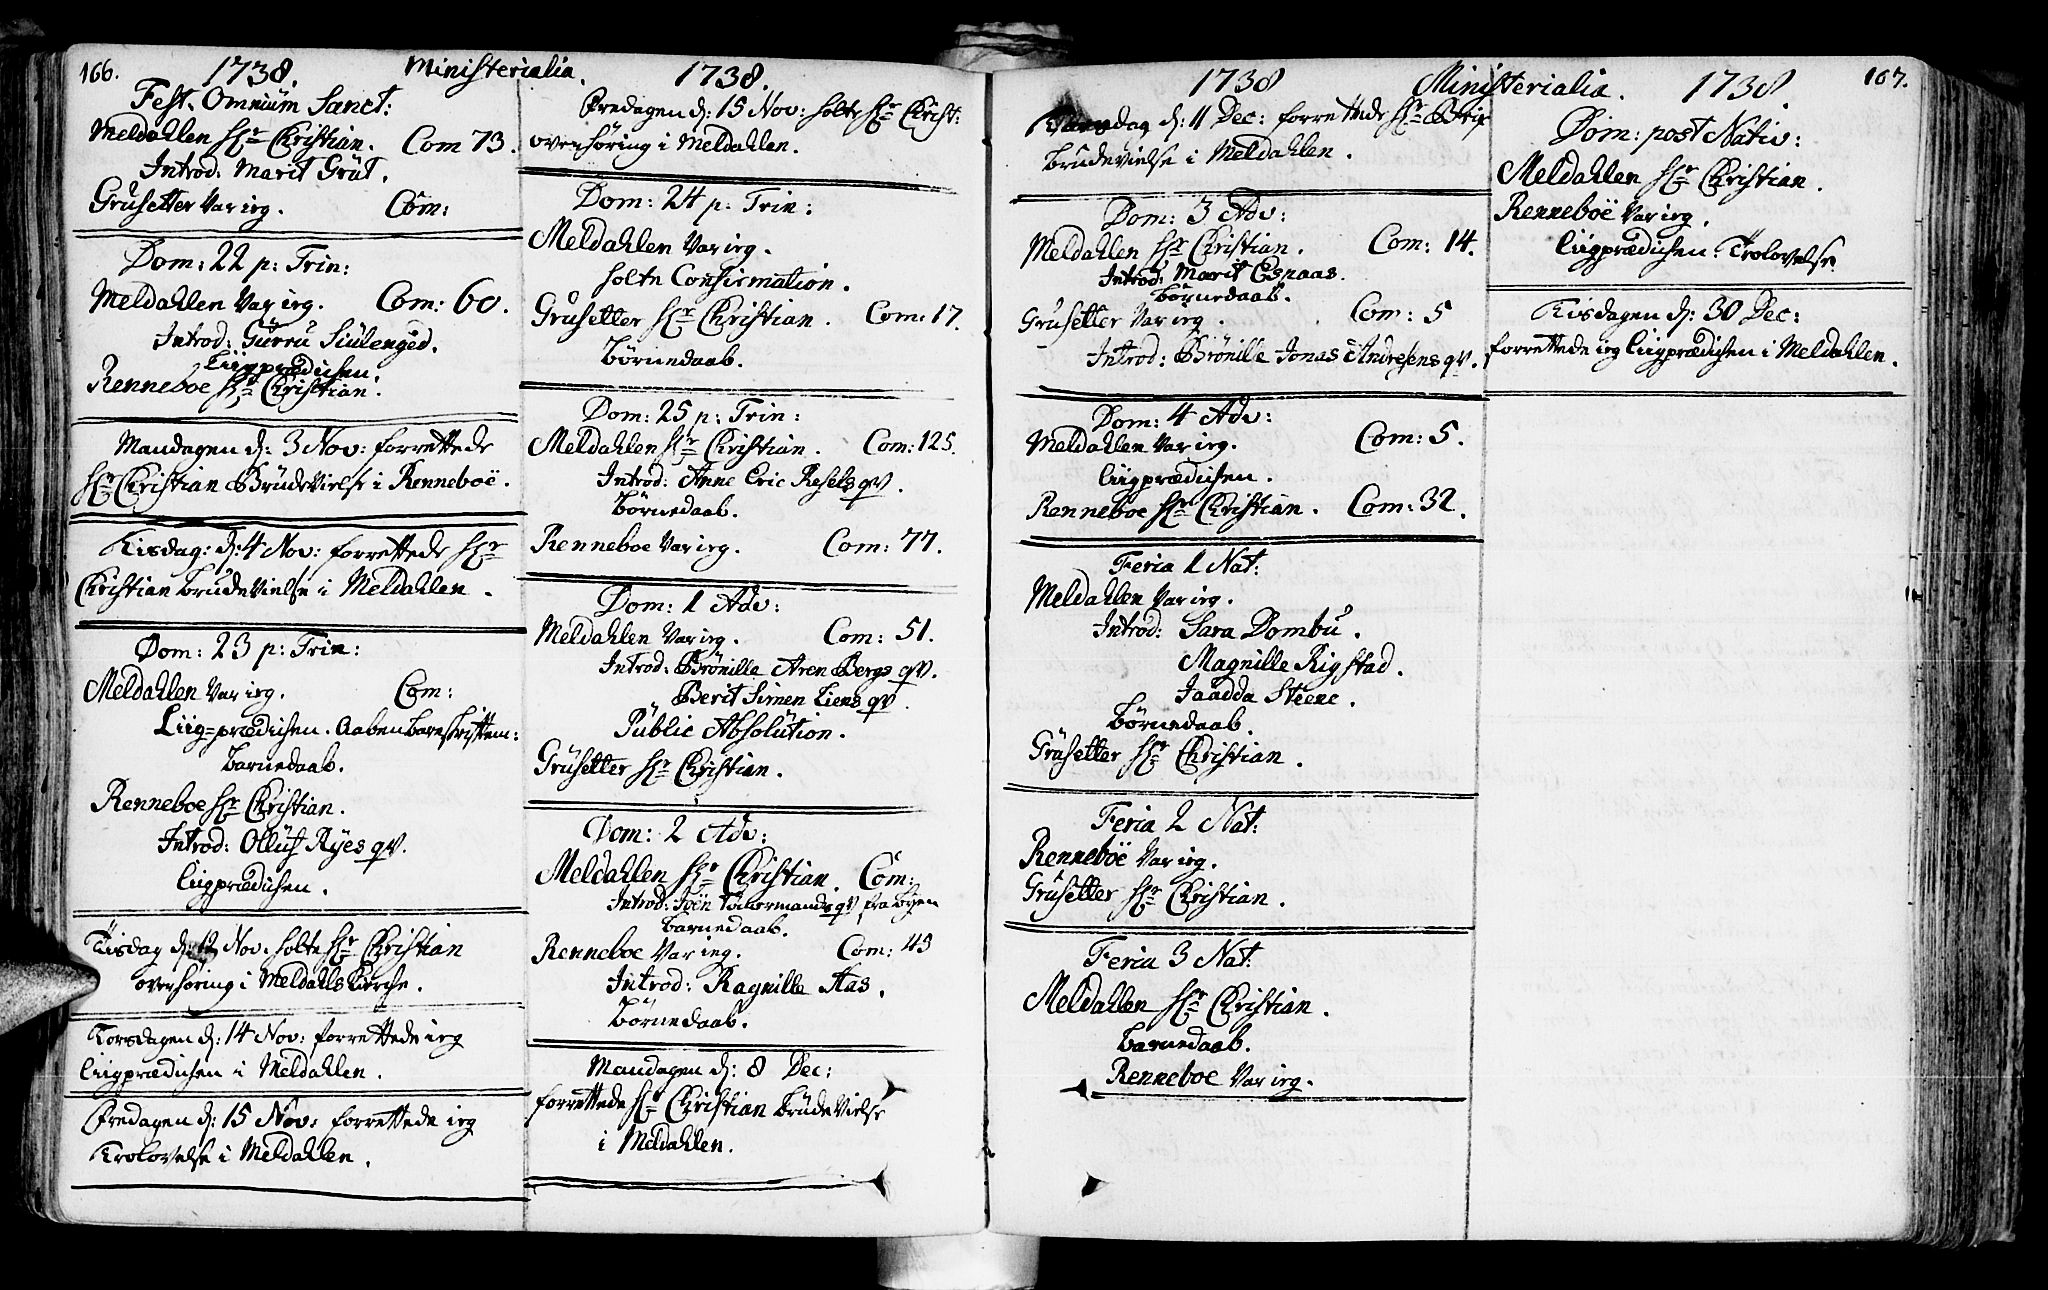 166.
1738. Ministerialia. 1738.
Fest. Omnium Sanct:
Meldahlen Hr Christian. Com 73.
Introd: Marit Grüt.
Grüsetter Var ieg. Com:
Dom: 22 p: Trin:
Meldahlen Var ieg. Com: 60.
Introd: Gurru
Liigprædichen.
Renneboe Hr Christian.
Mandagen d: 3 Nov: forrettede
Hr Christian Brüdevielse i Renneboe.
Tisdag: d: 4 Nov: forrettede Hr
Christian Brüdevielse i Meldahlen.
Dom: 23 p: Trin:
Meldahlen Var ieg. Com:
Liig=prædichen. Aabenbareskriftem:
Barnedaab.
Renneboe Hr Christian.
Introd: Ollüf Ryes qv.
Liigprædichen.
Tisdag d: 12 Nov: holte Hr Christian
overhöring i Meldahls Kirche.
Torsdagen d: 14 Nov: forrettede ieg
Liigprædichen i Meldahlen.
Fredagen d: 15 Nov: forrettede ieg
Trolovelse i Meldahlen.
Fredagen d: 15 Nov: holte Hr Christ:
overhöring i Meldahlen.
Dom: 24 p: Trin:
Meldahlen Var ieg.
holte Confirmation.
Grüsetter Hr Christian. Com: 17.
Börnedaab.
Dom: 25 p: Trin:
Meldahlen Hr Christian. Com: 125.
Introd: Anne Eric Resels qv.
Börnedaab.
Renneboe Var ieg. Com: 77.
Dom: 1 Adv:
Meldahlen Var ieg. Com: 51.
Introd: Brönille Aren Bergs qv.
Berit Simen Liens qv.
Public Absolütion.
Grüsetter Hr Christian.
Dom: 2 Adv:
Meldahlen Hr Christian. Com:
Introd: qv fra Byen
Barnedaab.
Renneboe Var ieg. Com: 43
Introd: Ragnille Aas.
Börnedaab.
Mandagen d: 8 Dec:
forrettede Hr Christian Brüdevielse
i Meldahlen.
1738 Ministerialia. 1738.
167.
d: 11 Dec: forrettede Hr
Brudevielse i Meldahlen.
Dom: 3 Adv:
Meldahlen Hr Christian. Com: 14.
Introd: Marit Espaas.
Börnedaab.
Grüsetter Var ieg. Com: 5
Introd: Brönille Jonas Andresens qv.
Dom: 4 Adv:
Meldahlen Var ieg. Com: 5.
Liigprædichen.
Renneboe Hr Christian. Com: 32.
Feria 1 Nat:
Meldahlen Var ieg.
Introd: Sara Dombu.
Magnille Rigstad.
Jaadda Steene.
Börnedaab.
Grüsetter Hr Christian.
Feria 2 Nat:
Renneböe Var ieg.
Grüsetter Hr Christian.
Feria 3 Nat:
Meldahlen Hr Christian.
Barnedaab.
Renneboe Var ieg.
Dom: post Nativ:
Meldahlen Hr Christian.
Renneboë Var ieg.
Liigprædichen. Trolovelse
Tisdagen d: 30 Dec:
forrettede ieg Liigprædichen i Meldahlen.